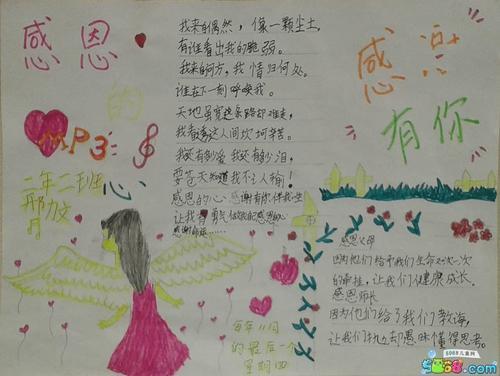 感恩
的
MP3
心
二年二班
我来自偶然，像一颗尘土，
有谁看出我的脆弱。
我来自何方，我情归何处，
谁在下一刻呼唤我。
天地虽宽这条路却难走，
我看遍这人间坎坷辛苦。
我还有多少爱我还有多少泪，
要苍天知道我不认输！
感恩的心感谢有你伴我一生
让我有勇气做我
感谢命运
感恩
有你
感恩父母
因为他们给予我们生命
让我们健康成长。
感恩师长
因为他们给了我们教诲，
让我们抛却愚昧懂得思考。
每年11月
的最后一个
星期四
5068儿童网
5068.com